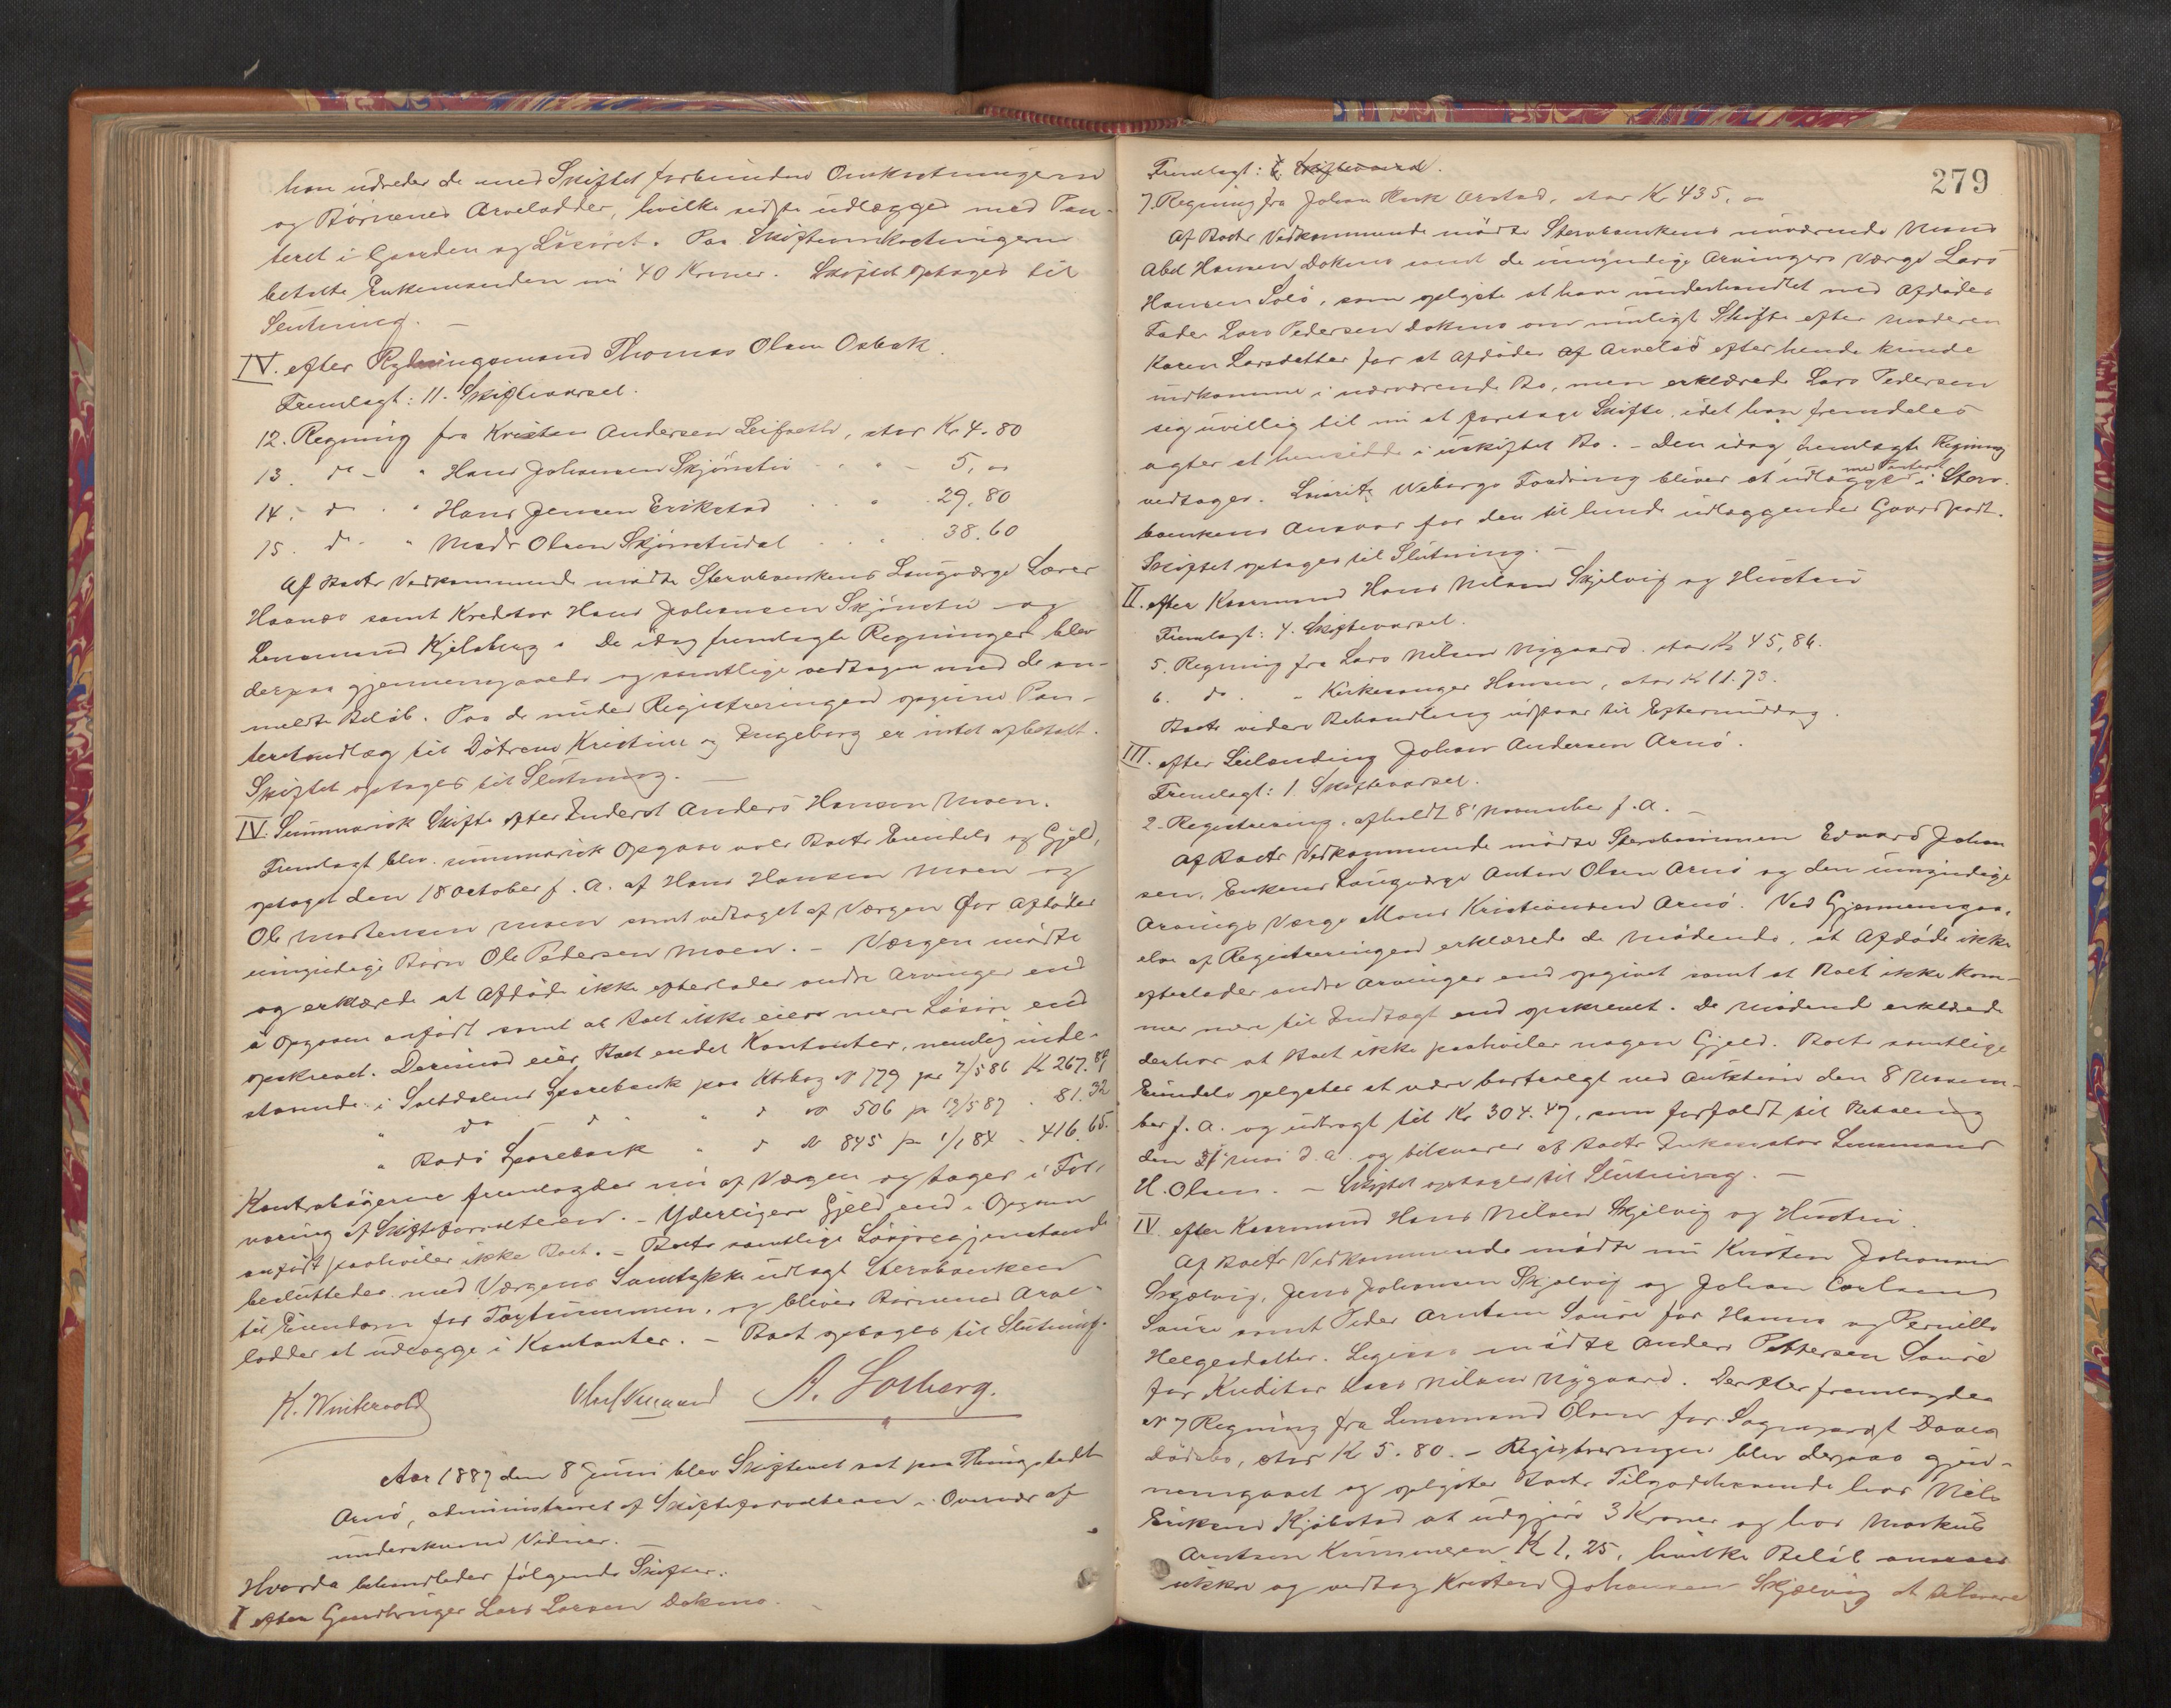 han udreder de med Skiftet forbundne Omkostninger
og Børnenes Arvelodder, hvilke sidste udlægges med Pan-
teret i Gaarden og Løsøret. Paa Skifteomkostningerne
betalte Enkemanden nu 40 Kroner. Skiftet optages til
Slutning. —
IV. efter Rydningsmand Thomas Olsen Osbak.
Fremlagt: 11. Skiftevarsel.
12. Regning fra Kristen Andersen Leifseth, stor Kr 4.80
13. do - " Hans Johansen Skjønstu " " - 5,00
14. do " " Hans Jensen Erikstad " " 29.80
15. do " " Mads Olsen Skjønstudal " " 38.60
Af Boets Vedkommende mødte Stervboenkens Laugværge Lærer
Haanæs samt Kreditor Hans Johansen Skjønstu og
Lensmand Kjelsberg. De idag fremlagte Regninger blev
derpaa gjennemgaaede og samtlige vedtagen med de an-
meldte Beløb. Paa de under Registreringen opgivne Pan-
teretsudlæg til Døtrene Kristine og Ingeborg er intet afbetalt.
Skiftet optages til Slutning. —
IV. Summarisk Skifte efter Inderst Anders Hansen Moen.
Fremlagt blev summarisk Opgave over Boets Eiendele og Gjeld,
optaget den 18 October f. A. af Hans Hansen Moen og
Ole Mortensen Moen samt vedtaget af Værgen for Afdødes
umyndige Børn Ole Pedersen Moen. - Værgen mødte
og erklærede at Afdøde ikke efterlader andre Arvinger end
i Opgaven anført samt at Boet ikke eier mere Løsøre end
opskrevet. Derimod eier Boet endel Kontanter, nemlig inde-
staaende i Saltdalens Sparebank paa Ktrbog N 179 pr 7/5 86 Kr 267.89
" do do " do No 506 pr 12/5 87 " 81.32
" Bodø Sparebank " do N 845 pr 1/1 84 " 416.65.
Kontrabøgerne fremlagdes nu af Værgen og tages i For-
varing af Skifteforvalteren. - Yderligere Gjeld end i Opgaven
anført paahviler ikke Boet. - Boets samtlige Løsøregjenstande
besluttedes med Værgens Samtykke udlagt Stervboenken
til Eiendom for Taxtsummen, og bliver Børnenes Arve-
lodder at udlægge i Kontanter. - Boet optages til Slutning.
K. Wintervold A. Solberg.
Aar 1887 den 8 Juni blev Skifteret sat paa Thingstedet
Arnø, administreret af Skifteforvalteren i Overvær af
underskrevne Vidner. —
Hvorda behandledes følgende Skifter:
I efter Gaardbruger Lars Larsen Dokmo. -
279
Fremlagt: 6. Skiftevarsel.
7. Regning fra Johan Herk Ørstad, stor Kr 435,00
Af Boets Vedkommende mødte Stervboenkens nuværende Mand
Abel Hansen Dokmo samt de umyndige Arvingers Værge Lars
Hansen Solø, som oplyste at have underhandlet med Afdødes
Fader Lars Pedersen Dokmo om muligt Skifte efter Moderen
Karen Larsdatter for at Afdødes af Arvelod efter hende kunde
indkomme i nærværende Bo, men erklærede Lars Pedersen
sig uvillig til nu at foretage Skifte, idet han fremdeles
agter at hensidde i uskiftet Bo. - Den idag fremlagte Regning
vedtages. Lauritz Webergs Fordring bliver at udlægge med Panteret i Sterv-
boenkens Ansvar for den til hende udlæggendes Gaardpart.
Skiftet optages til Slutning. —
II. efter Kaarmand Hans Nilsen Skjelvig og Hustru
Fremlagt: 4. Skiftevarsel.
5. Regning fra Lars Nilsen Nygaard stor Kr 45,86.
6. do " " Kirkesanger Hansen, stor Kr 11.73.
Boets videre Behandling udstaar til Eftermiddag.
III. efter Leilænding Johan Andersen Arnø.
Fremlagt: 1. Skiftevarsel.
2. Registrering, afholdt 8' November f. A. —
Af Boets Vedkommende mødte Stervbosønnen Edvard Johan
sen, Enkens Laugværge Anton Olsen Arnø og den umyndige
Arvings Værge Mons Kristiansen Arnø. Ved Gjennemgaa-
else af Registreringen erklærede de Mødende, at Afdøde ikke
efterlader andre Arvinger end opgivet samt at Boet ikke kom-
mer mere til Indtægt end opskrevet. De Mødende erklærede
derhos at Boet ikke paahviler nogen Gjeld. Boets samtlige
Eiendele oplystes at være bortsolgt ved Auktion den 8 Novem-
ber f. A. og udbragt til Kr 304.47, som forfaldt til Betaling
den 31 Mai d. A. og tilsvares af Boets Inkassator Lensmand
H. Olsen. - Skiftet optages til Slutning. —
IV efter Kaarmand Hans Nilsen Skjelvig og Hustru.
Af Boets Vedkommende mødte nu Kristen Johansen
Skjælvig, Jens Johansen Skjælvig og Johan Carlsen
Saure samt Peder Arntsen Saure for Hanna og Pernille
Helgesdatter. Ligesaa mødte Anders Pettersen Saure
for Kreditor Lars Nilsen Nygaard. Derefter fremlagdes
N 7 Regning fra Lensmand Olsen for
dødsbo, stor Kr 5.80. - Registreringen blev derpaa gjen-
nemgaaet og oplystes Boets Tilgodehavende hos Nils
Eriksen Kjelstad at udgjøre 3 Kroner og hos Markus
Arntsen Kr 1.25, hvilke Beløb ansees
sikkre og vedtog Kristen Johansen Skjælvig at tilsvare